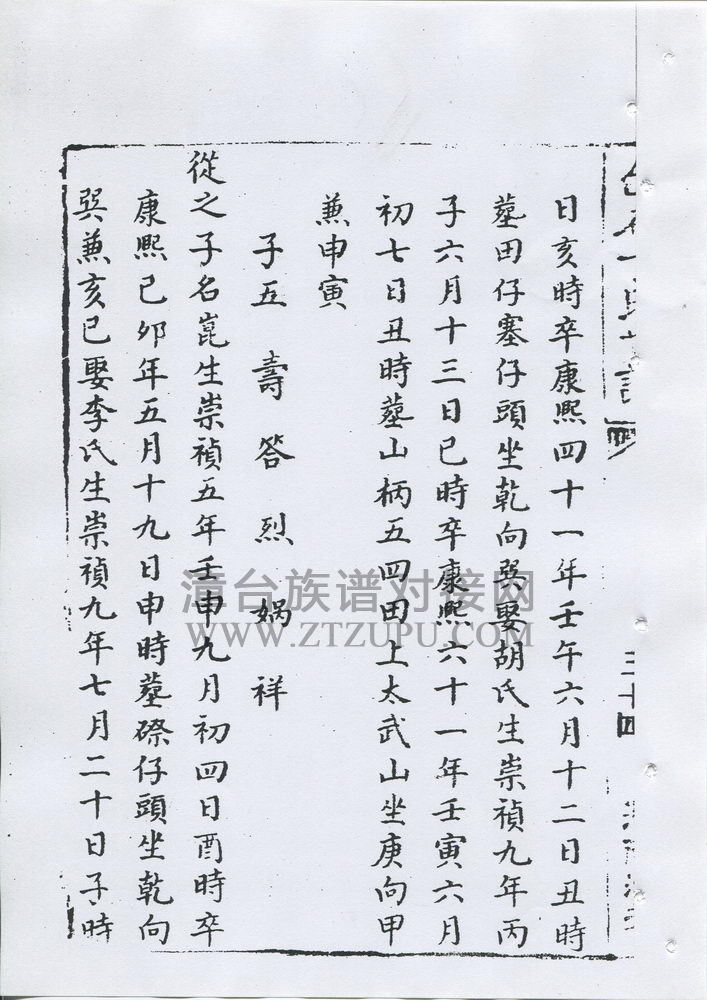 日亥時卒康熙四十一年壬午六月十二日丑時
墓田仔塞仔頭坐乾向巽娶胡氏生崇禎九年丙
子六月十三日巳時卒康熙六十一年壬寅六月
初七日丑時墓山柄五四田上太武山坐庚向甲
兼申寅
子五 壽 答 烈 娲 祥
從之子名崑生崇禎五年壬申九月初四日酉時卒
康熙己卯年五月十九日申時墓磜仔頭坐乾向
巽兼亥巳娶李氏生崇禎九年七月二十日子時
三十四
漳台族谱对接网
WWW.ZTZUPU.COM